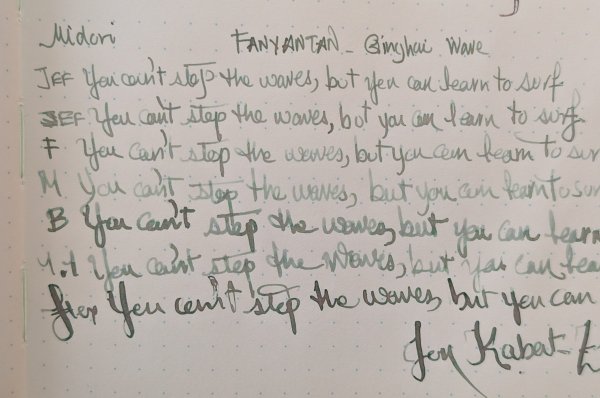 Midori FANYANTAN - Qinghai Wave
JEF You can't stop the waves, but you can learn to surf
SEF You can't stop the waves, but you can learn to surf
F You can't stop the waves, but you can learn to sur
M You can't stop the waves, but you can learn to sur
B You can't stop the waves, but you can learn
1.1 You can't stop the waves, but you can lea
flex You can't stop the waves, but you can
Jon Kabat-